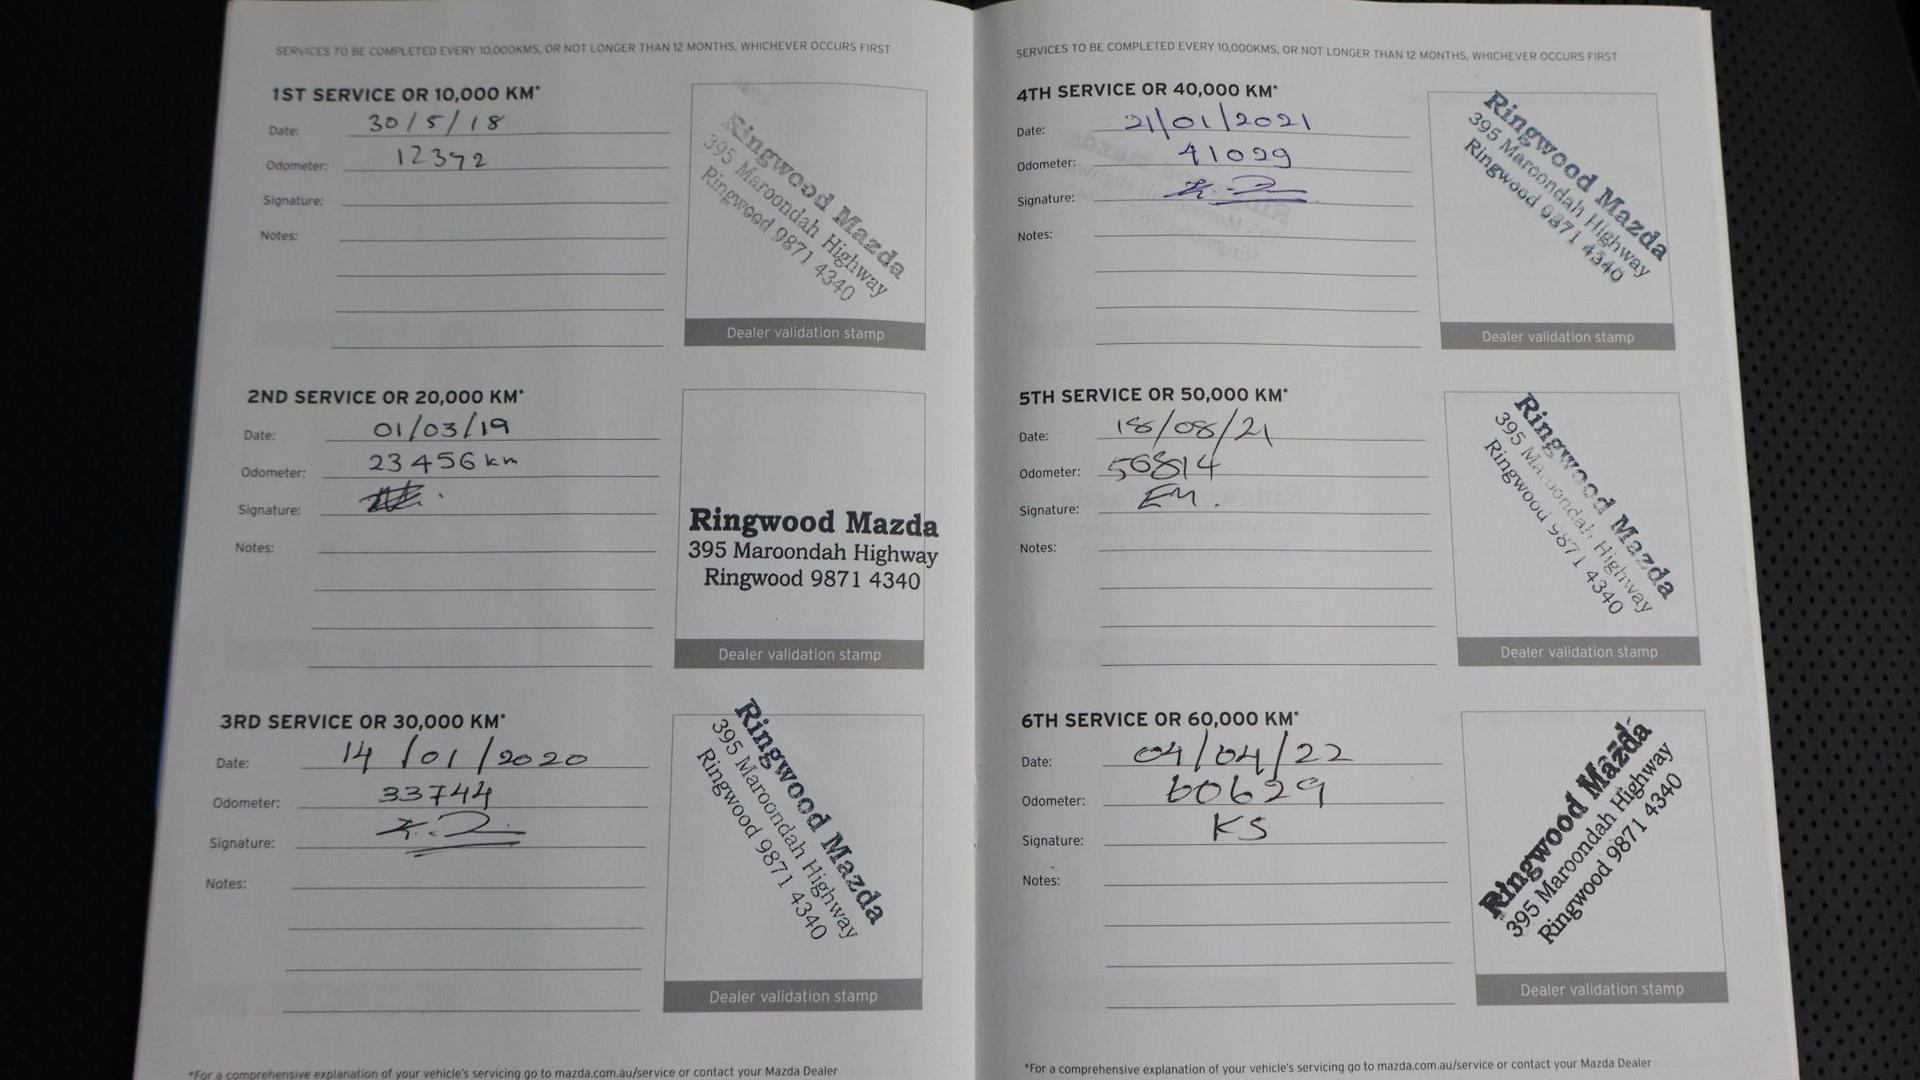 SERVICES TO BE COMPLETED EVERY 10,000KMS, OR NOT LONGER THAN 12 MONTHS, WHICHEVER OCCURS FIRST
1ST SERVICE OR 10,000 KM*
Date: 30/5/18
Odometer: 12372
Signature:
Notes:
Ringwood Mazda
395 Maroondah Highway
Ringwood 9871 4340
Dealer validation stamp
2ND SERVICE OR 20,000 KM*
Date: 01/03/19
Odometer: 23456 km
Signature:
Notes:
Ringwood Mazda
395 Maroondah Highway
Ringwood 9871 4340
Dealer validation stamp
3RD SERVICE OR 30,000 KM*
Date: 14/01/2020
Odometer: 33744
Signature:
Notes:
Ringwood Mazda
395 Maroondah Highway
Ringwood 9871 4340
Dealer validation stamp
*For a comprehensive explanation of your vehicle's servicing go to mazda.com.au/service or contact your Mazda Dealer
SERVICES TO BE COMPLETED EVERY 10,000KMS, OR NOT LONGER THAN 12 MONTHS, WHICHEVER OCCURS FIRST
4TH SERVICE OR 40,000 KM*
Date: 21/01/2021
Odometer: 41099
Signature:
Notes:
Ringwood Mazda
395 Maroondah Highway
Ringwood 9871 4340
Dealer validation stamp
5TH SERVICE OR 50,000 KM*
Date: 18/08/21
Odometer: 50814
Signature: EM.
Notes:
Ringwood Mazda
395 Maroondah Highway
Ringwood 9871 4340
Dealer validation stamp
6TH SERVICE OR 60,000 KM*
Date: 04/04/22
Odometer: 60629
Signature: KS
Notes:
Ringwood Mazda
395 Maroondah Highway
Ringwood 9871 4340
Dealer validation stamp
*For a comprehensive explanation of your vehicle's servicing go to mazda.com.au/service or contact your Mazda Dealer